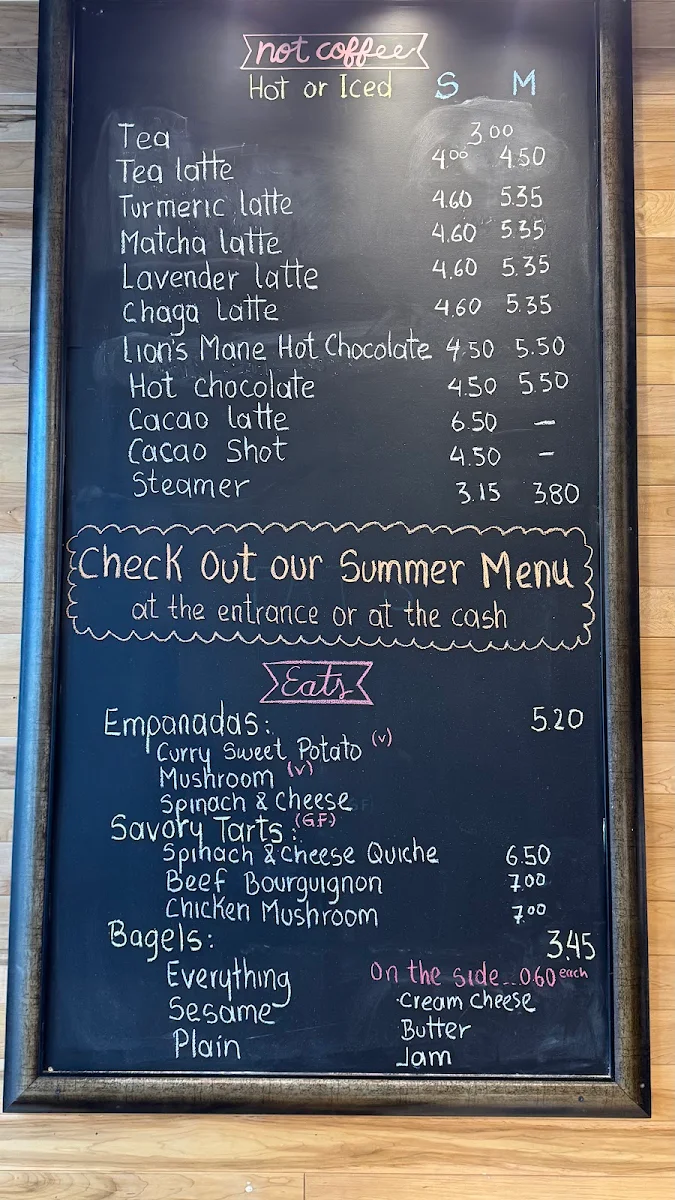 not coffee
Hot or Iced S M
Tea 3.00
Tea latte 4.00 4.50
Turmeric latte 4.60 5.35
Matcha latte 4.60 5.35
Lavender latte 4.60 5.35
Chaga latte 4.60 5.35
Lion's Mane Hot Chocolate 4.50 5.50
Hot chocolate 4.50 5.50
Cacao latte 6.50 -
Cacao Shot 4.50 -
Steamer 3.15 3.80
Check out our Summer Menu
at the entrance or at the cash
Eats
Empanadas: 5.20
Curry Sweet Potato (v)
Mushroom (v)
Spinach & Cheese
Savory Tarts: (G.F)
Spinach & Cheese Quiche 6.50
Beef Bourguignon 7.00
Chicken Mushroom 7.00
Bagels: 3.45
Everything On the side...0.60 each
Sesame -Cream cheese
Plain Butter
Jam